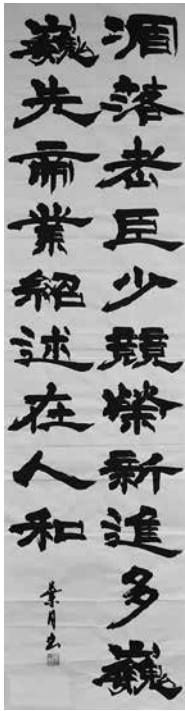 凋落老臣少競榮新進多巍
巍先帝業紹述在人和
葉月書